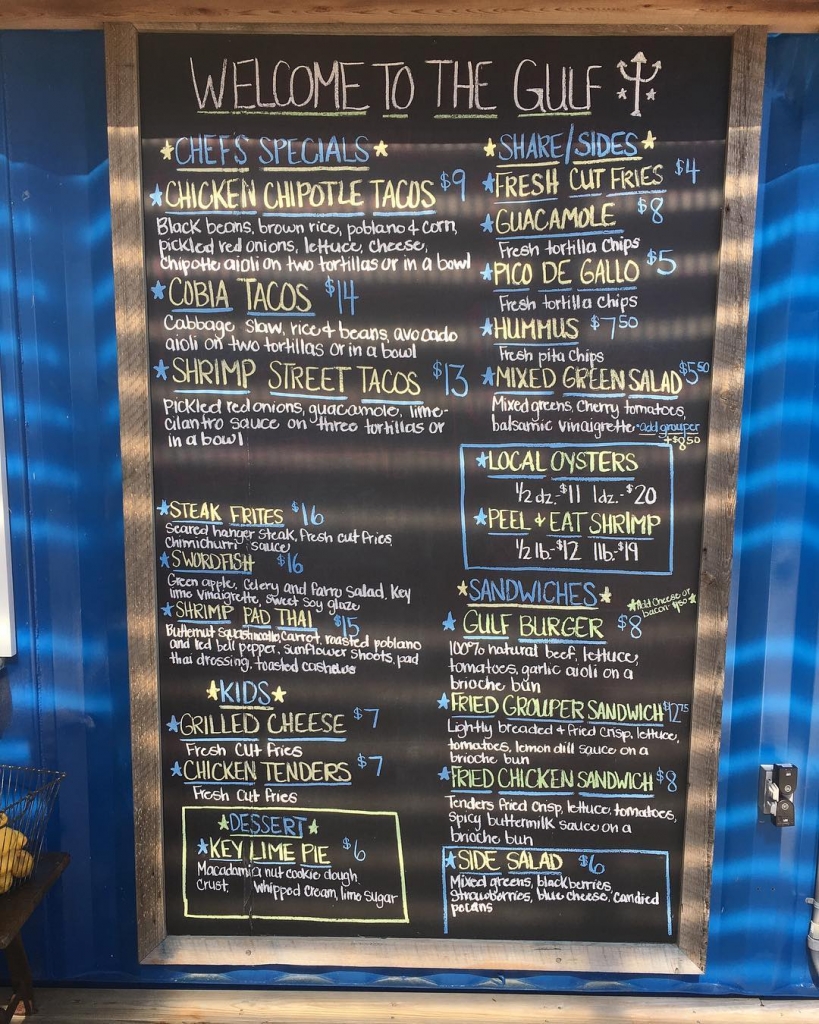 WELCOME TO THE GULF
CHEFS SPECIALS
CHICKEN CHIPOTLE TACOS $9
Black beans, brown rice, poblano & corn,
pickled red onions, lettuce, cheese,
chipotle aioli on two tortillas or in a bowl
COBIA TACOS $14
Cabbage slaw, rice & beans, avocado
aioli on two tortillas or in a bowl
SHRIMP STREET TACOS $13
Pickled red onions, guacamole, lime-
cilantro sauce on three tortillas or
in a bowl
STEAK FRITES $16
Seared hanger steak, fresh cut fries
Chimichurri sauce
SWORDFISH $16
Green apple, celery and farro salad, key
lime vinaigrette, sweet soy glaze
SHRIMP PAD THAI $15
Butternut squash noodle, carrot, roasted poblano
and red bell pepper, sunflower shoots, pad
thai dressing, toasted cashews
KIDS
GRILLED CHEESE $7
Fresh cut fries
CHICKEN TENDERS $7
Fresh cut fries
DESSERT
KEY LIME PIE $6
Macadamia nut cookie dough
crust, whipped cream, lime sugar
SHARE/SIDES
FRESH CUT FRIES $4
GUACAMOLE $8
Fresh tortilla chips
PICO DE GALLO $5
Fresh tortilla chips
HUMMUS $7.50
Fresh pita chips
MIXED GREEN SALAD $5.50
Mixed greens, cherry tomatoes,
balsamic vinaigrette • add grouper
+$8.50
LOCAL OYSTERS
1/2 dz.-$11 1dz.-$20
PEEL & EAT SHRIMP
1/2 lb.-$12 1lb.-$19
SANDWICHES
Add cheese or
bacon
GULF BURGER $8
100% natural beef, lettuce,
tomatoes, garlic aioli on a
brioche bun
FRIED GROUPER SANDWICH $12.75
Lightly breaded & fried crisp, lettuce,
tomatoes, lemon dill sauce on a
brioche bun
FRIED CHICKEN SANDWICH $8
Tenders fried crisp, lettuce, tomatoes,
spicy buttermilk sauce on a
brioche bun
SIDE SALAD $6
Mixed greens, blackberries,
strawberries, blue cheese, candied
pecans